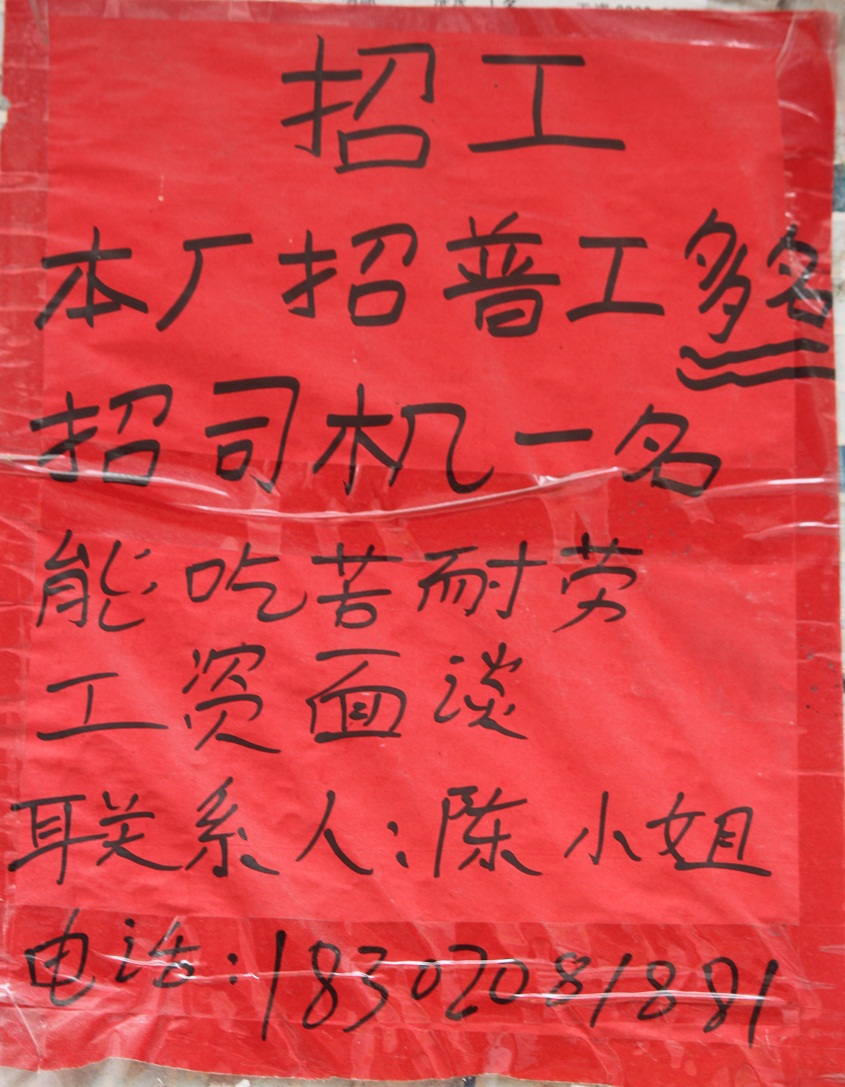 招工
本厂招普工多名
招司机一名
能吃苦耐劳
工资面谈
联关系人:陈小姐
电话:18302081881